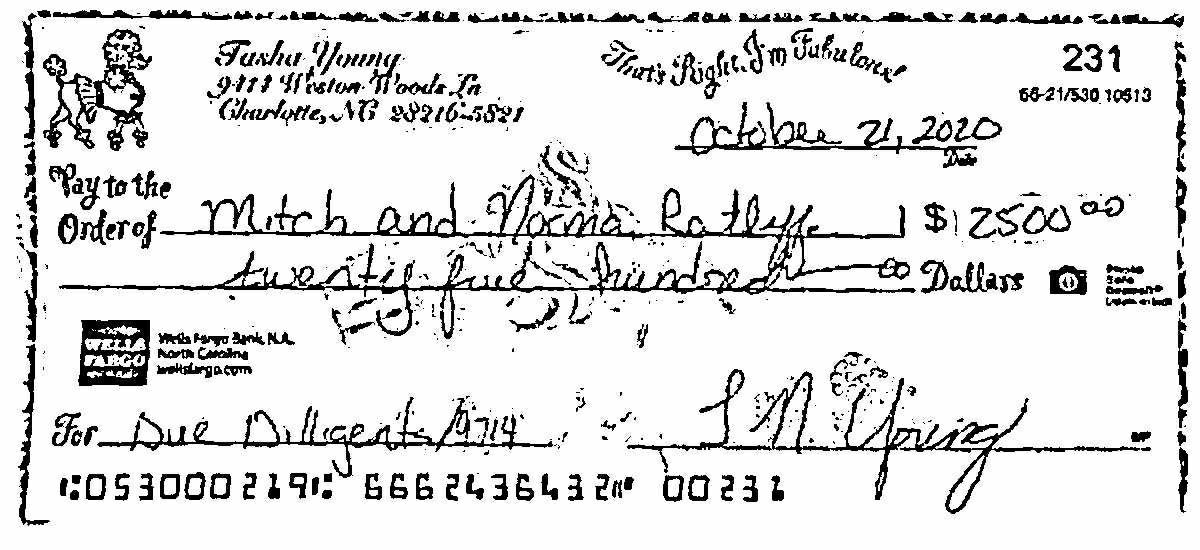 Tasha Young
9414 Weston Woods Ln
Charlotte, NC 28216-5521
That's Right, I'm Fabulous!
231
66-21/530 10613
October 21, 2020
Date
Pay to the
Order of Mitch and Norma Ratlyff $ 2500 00
twenty five hundred 00 Dollars
WELLS
FARGO
Wells Fargo Bank, N.A.
North Carolina
wellsfargo.com
For Due Dilligents/9714
T N Young
MP
⑆053000219⑆ 6662436432⑈ 00231